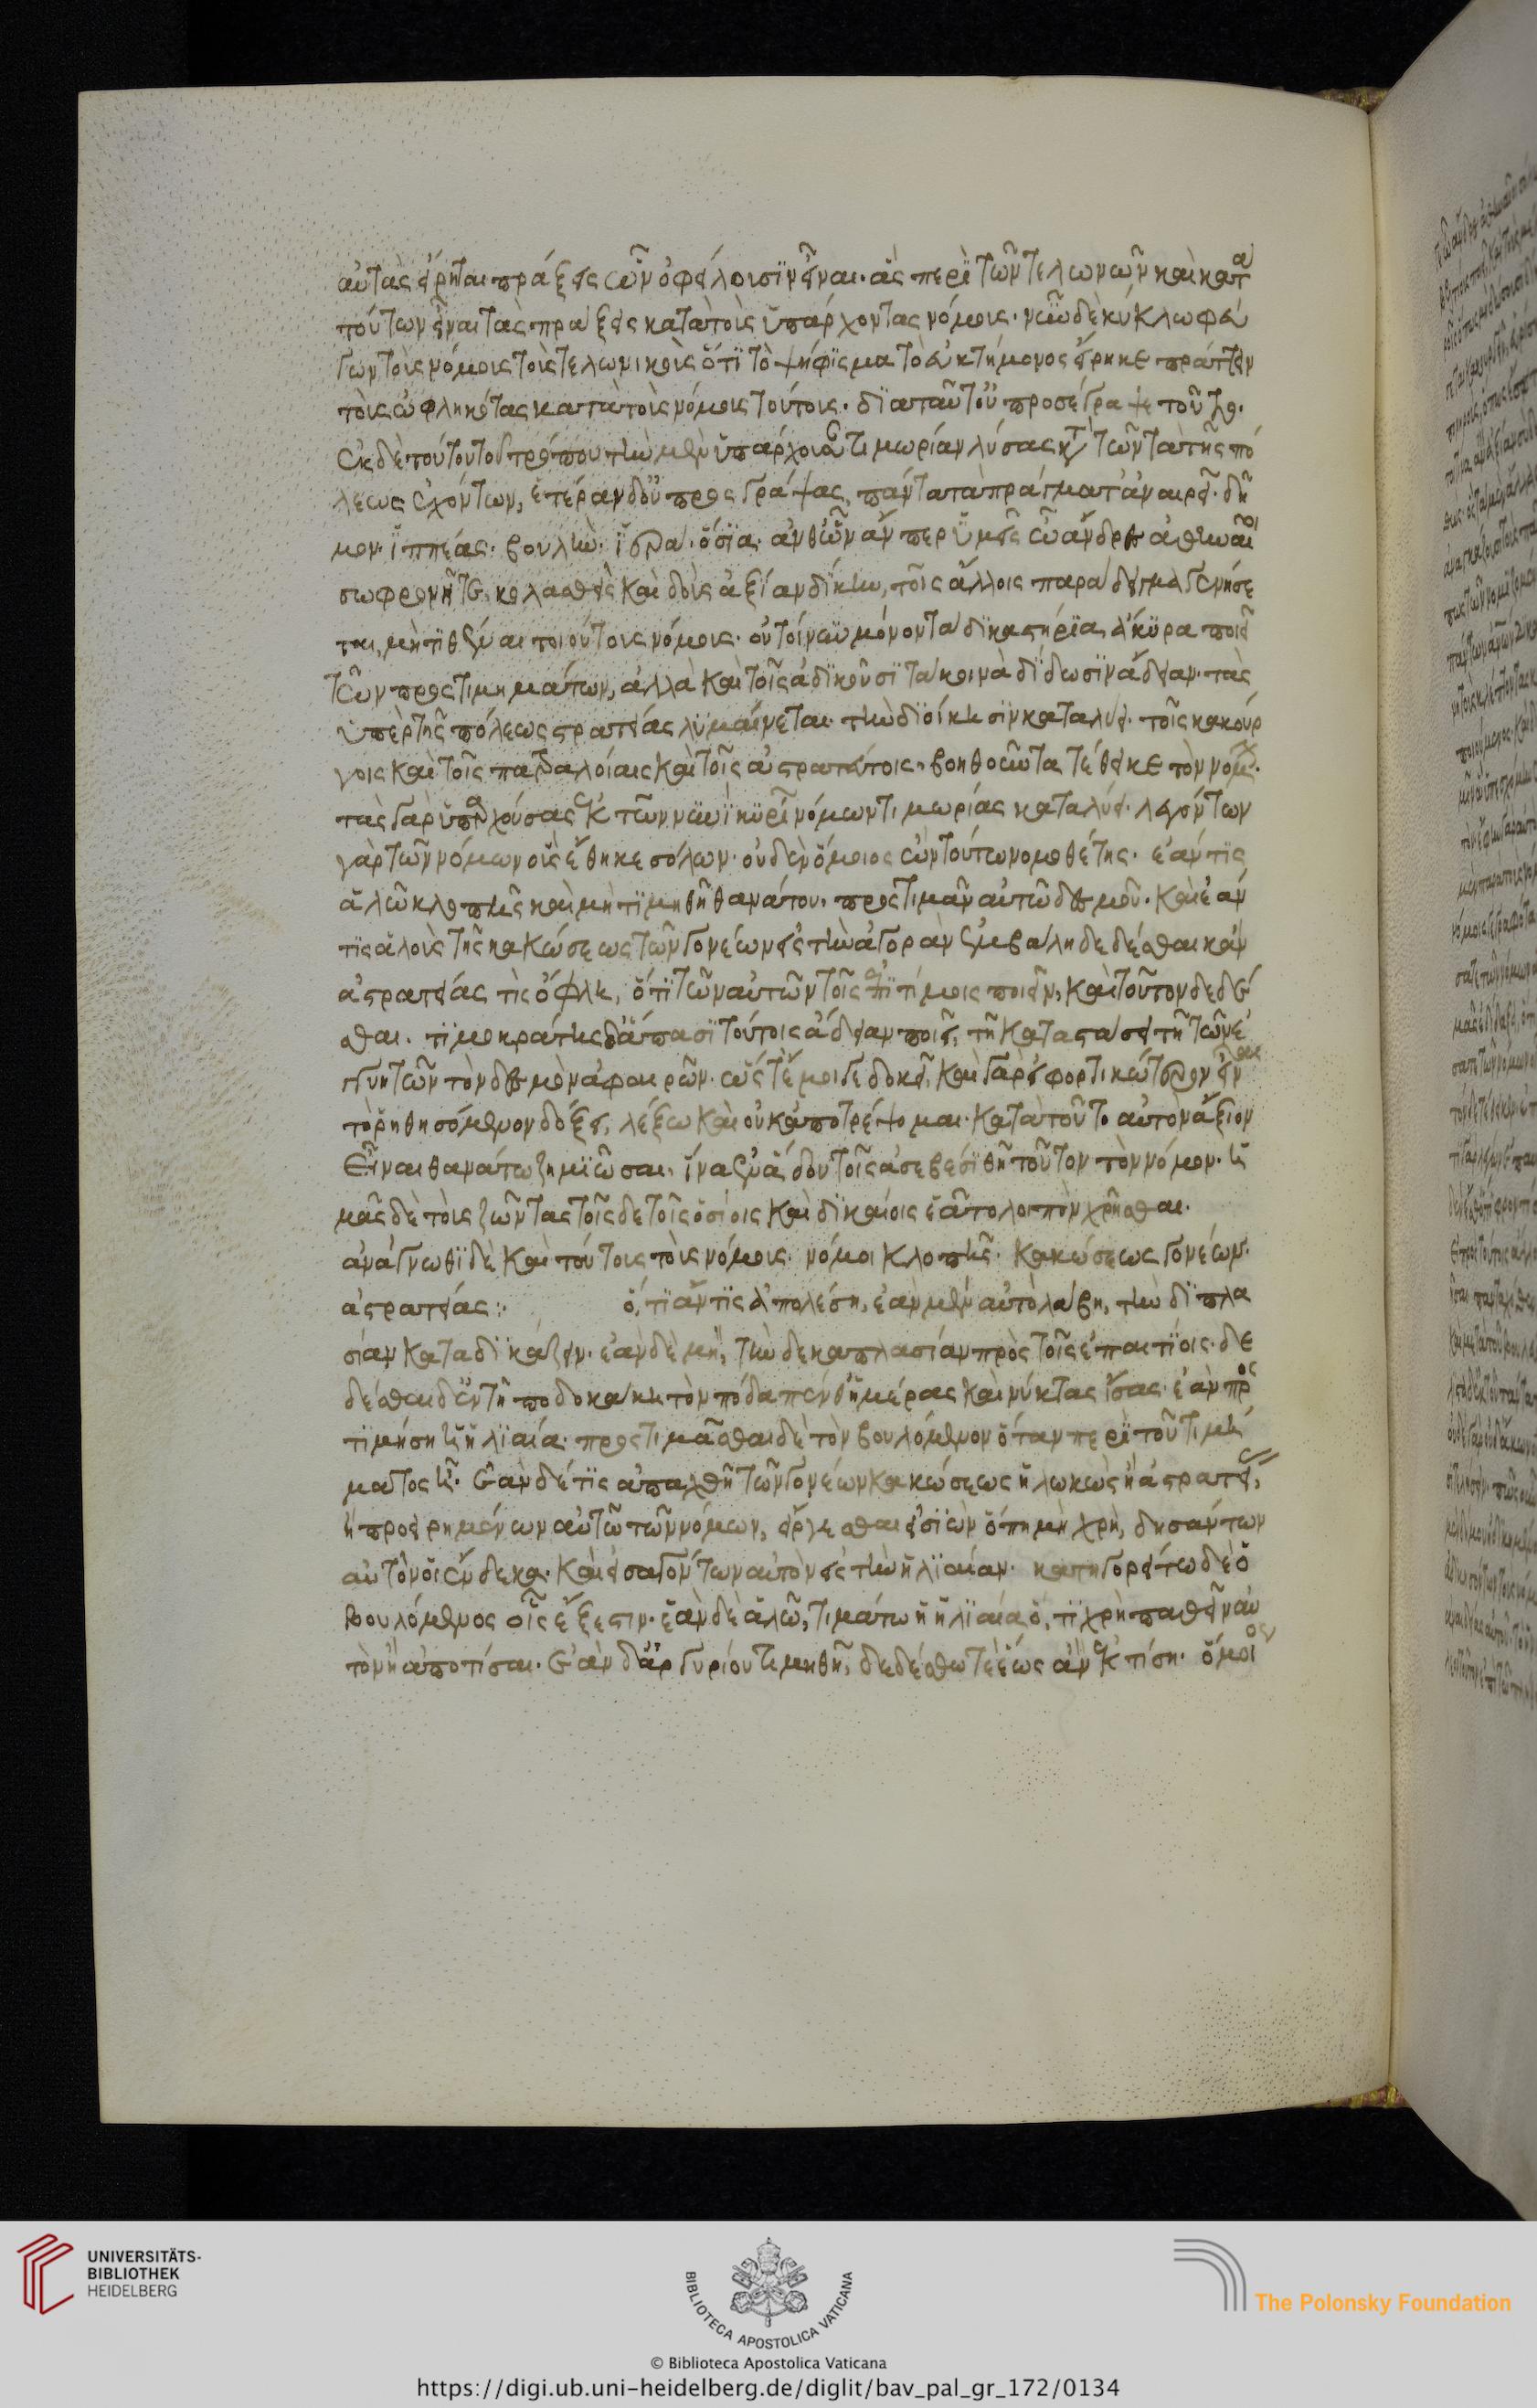 αὐτὰς εἴρηται πράξεις ὧν ὀφείλουσιν εἶναι. ἃς περὶ τῶν τελωνῶν καὶ κατὰ
τούτων εἶναι τὰς πράξεις κατὰ τοὺς ὑπάρχοντας νόμους. νῦν δὲ κύκλω φεύ
γων τοὺς νόμους τοὺς τελωνικοὺς ὅτι τὸ ψήφισμα τὸ εὐκτήμονος εἴρηκε πράττειν
τοὺς ὠφληκότας κατὰ τοὺς νόμους τούτους. διὰ ταῦτ' οὐ προσέγραψε τοῦτο.
ἐκ δὲ τούτου τοῦ τρόπου τὴν μὲν ὑπάρχουσαν τιμωρίαν λύσας κατὰ τῶν τὰ τῆς πό
λεως ἐχόντων, ἑτέραν δ' οὐ προσγράψας, πάντα τὰ πράγματ' ἀναιρεῖ. δῆ
μον. ἱππέας. βουλὴν. ἱερὰ. ὅσια. ἀνθ' ὧν ἄν περ ὑμεῖς ὦ ἄνδρες ἀθηναῖοι
σωφρονῆτε, κολασθεὶς καὶ δοὺς ἀξίαν δίκην, τοῖς ἄλλοις παράδειγμα γενήσε
ται, μὴ τιθέναι τοιούτους νόμους. οὐ τοίνυν μόνον τὰ δικαστήρια ἄκυρα ποιεῖ
τῶν προστιμημάτων, ἀλλὰ καὶ τοῖς ἀδικοῦσι τὰ κοινὰ δίδωσιν ἄδειαν. τὰς
ὑπὲρ τῆς πόλεως στρατείας λυμαίνεται. τὴν διοίκησιν καταλύει. τοῖς κακούρ
γοις καὶ τοῖς πατραλοίαις καὶ τοῖς ἀστρατεύτοις βοηθοῦντα τέθεικε τὸν νόμον.
τὰς γὰρ ὑπαρχούσας ἐκ τῶν νῦν κυρίων νόμων τιμωρίας καταλύει. λεγόντων
γὰρ τῶν νόμων οὓς ἔθηκε σόλων. οὐδὲν ὅμοιος ὢν τούτω νομοθέτης. ἐάν τις
ἁλῶ κλοπῆς καὶ μὴ τιμηθῆ θανάτου. προστιμᾶν αὐτῶ δεσμοῦ. καὶ ἐάν
τις ἁλοὺς τῆς κακώσεως τῶν γονέων εἰς τὴν ἀγορὰν ἐμβάλη δεδέσθαι κἂν
ἀστρατείας τὶς ὄφλη, ὅτι τῶν αὐτῶν τοῖς ἐπιτίμοις ποιεῖν, καὶ τοῦτον δεδέ
σθαι. τιμοκράτης δ' ἅπασι τούτοις ἄδειαν ποιεῖ, τῆ καταστάσει τῆ τῶν ἐ
γγυητῶν τὸν δεσμὸν ἀφαιρῶν. ὥστ' ἔμοιγε δοκεῖ, καὶ γὰρ εἰ φορτικώτερον εἶναι
τὸ ῥηθησόμενον δόξει, λέξω καὶ οὐκ ἀποτρέψομαι. κατὰ τοῦτο αὐτὸν ἄξιον
εἶναι θανάτω ζημιῶσαι, ἵν' ἐν ἅδου τοῖς ἀσεβέσι θῆ τοῦτον τὸν νόμον. ἡ
μᾶς δὲ τοὺς ζῶντας τοῖς δε τοῖς ὁσίοις καὶ δικαίοις ἐᾶ τολοιπὸν χρῆσθαι.
ἀνάγνωθι δὲ καὶ τούτους τοὺς νόμους. νόμοι κλοπῆς. κακώσεως γονέων.
ἀστρατείας: ὅ, τι ἄν τις ἀπολέση, ἐὰν μὲν αὐτὸ λάβη, τὴν διπλα
σίαν καταδικάζειν. ἐὰν δὲ μὴ, τὴν δεκαπλασίαν πρὸς τοῖς ἐπαιτίοις. δε
δέσθαι δ' ἐν τῆ ποδοκάκη τὸν πόδα πένθ' ἡμέρας καὶ νύκτας ἴσας. ἐὰν προσ
τιμήση ἡ ἡλιαία. προστιμᾶσθαι δὲ τὸν βουλόμενον ὅταν περὶ τοῦ τιμή
ματος ἦ. ἐὰν δέ τις ἀπαχθῆ τῶν γονέων κακώσεως ἡλωκὼς ἢ ἀστρατείας
ἢ προειρημένων αὐτῶ τῶν νόμων, εἴργεσθαι εἰσιὼν ὅπη μὴ χρὴ, δησάντων
αὐτὸν οἱ ἕνδεκα. καὶ εἰσαγόντων αὐτὸν εἰς τὴν ἡλιαίαν. κατηγορείτω δὲ ὁ
βουλόμενος οἷς ἔξεστιν. ἐὰν δὲ ἁλῶ, τιμάτω ἡ ἡλιαία ὅ, τι χρὴ παθεῖν αὐ
τὸν ἢ ἀποτίσαι. ἐὰν δ' ἀργυρίου τιμηθῆ, δεδέσθω τέως ἂν ἐκτίση. ὅμοιος
UNIVERSITÄTS-
BIBLIOTHEK
HEIDELBERG
BIBLIOTECA APOSTOLICA VATICANA
The Polonsky Foundation
© Biblioteca Apostolica Vaticana
https://digi.ub.uni-heidelberg.de/diglit/bav_pal_gr_172/0134